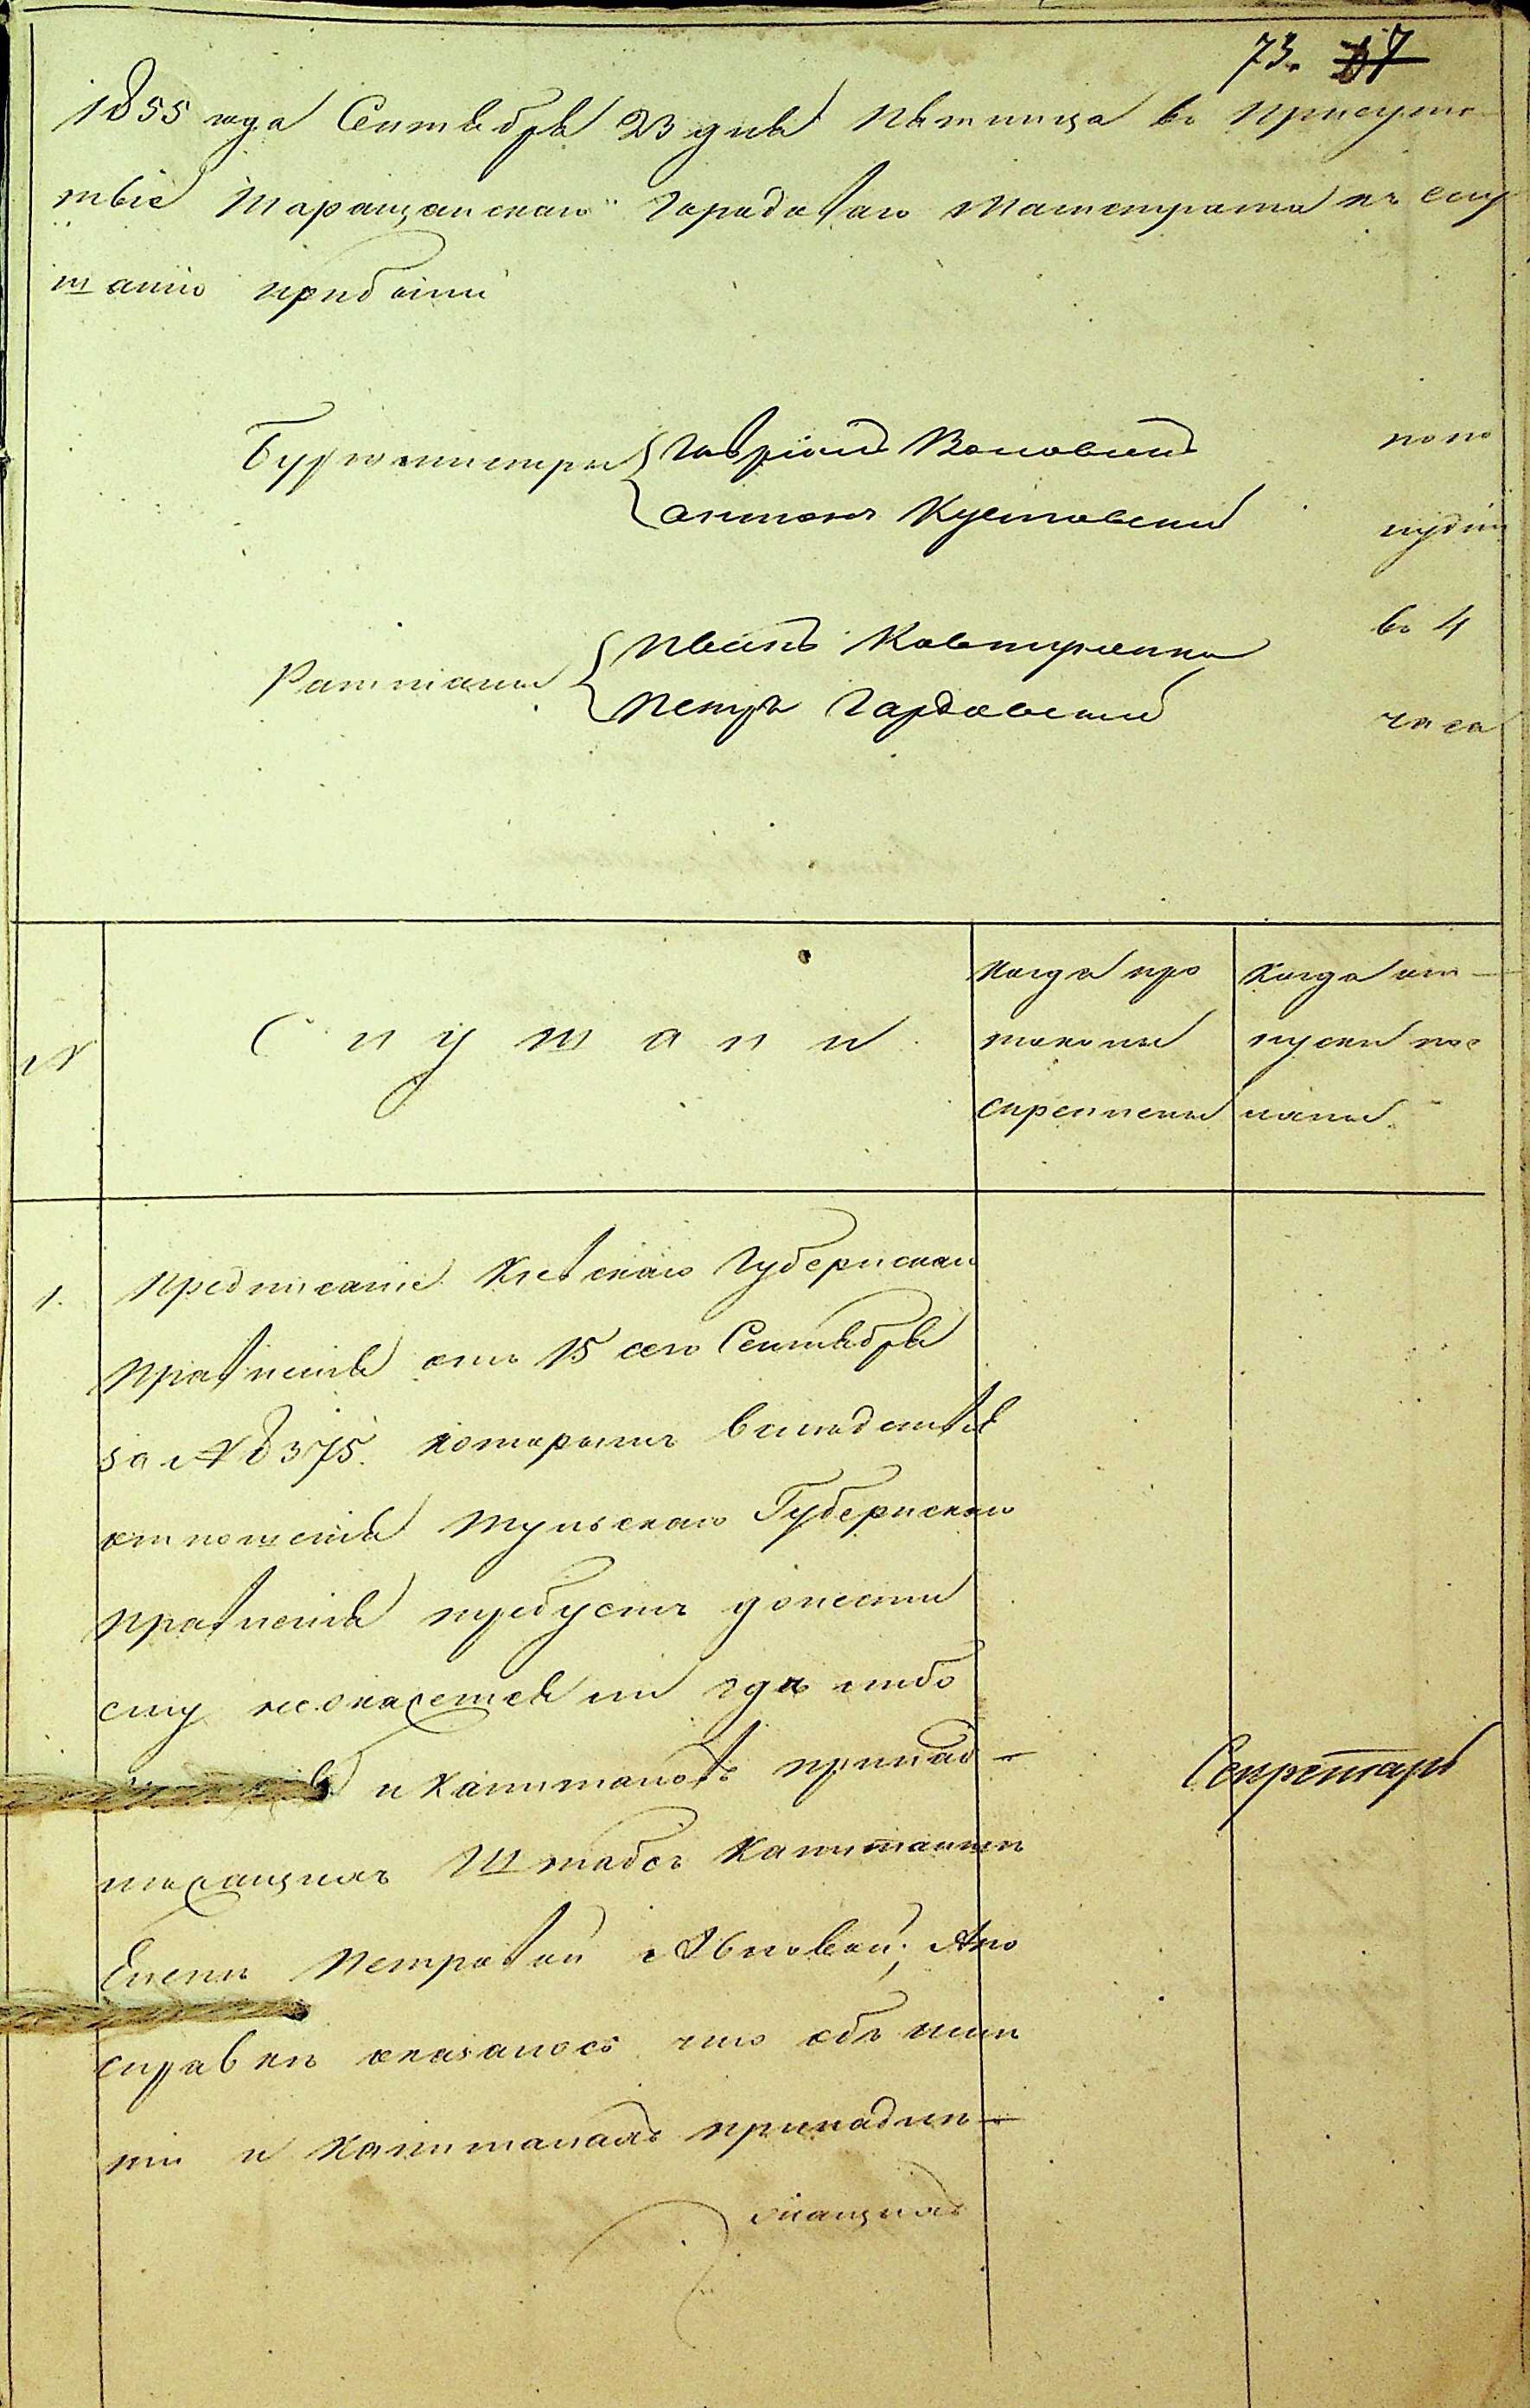 73. 87
1855 года Сентября 23 дня Пятница въ Присутс
твіе Таращанскаго Городоваго Магистрата къ слу
шанію прибыли
Бургомистры Гавріилъ
пополу
Антонъ Кустовскій
лудни
Иванъ Ковтуненко
въ 4
Ратманы
Петръ Гардовскій
часа
№
Слушали
Когда про
токолы
скреплены
Когда от
пуски пос
ланы
1. Предписаніе Кіевскаго Губернскаго
Правленія отъ 15 сего Сентября
за № 8375. которымъ въ следствіе
отношенія Тульскаго Губернскаго
Правленія требуетъ донести
ему неокажется ли где либо
и капиталовъ принад-
лежащихъ Штабсъ Капитанше
Елене Петровой Но по
справке оказалось что объ име
ніи и капиталахъ принадле-
жащихъ
Секретарь